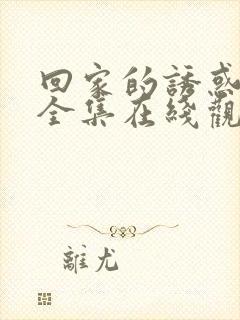 回家的誘惑
全集在綫觀
離尤